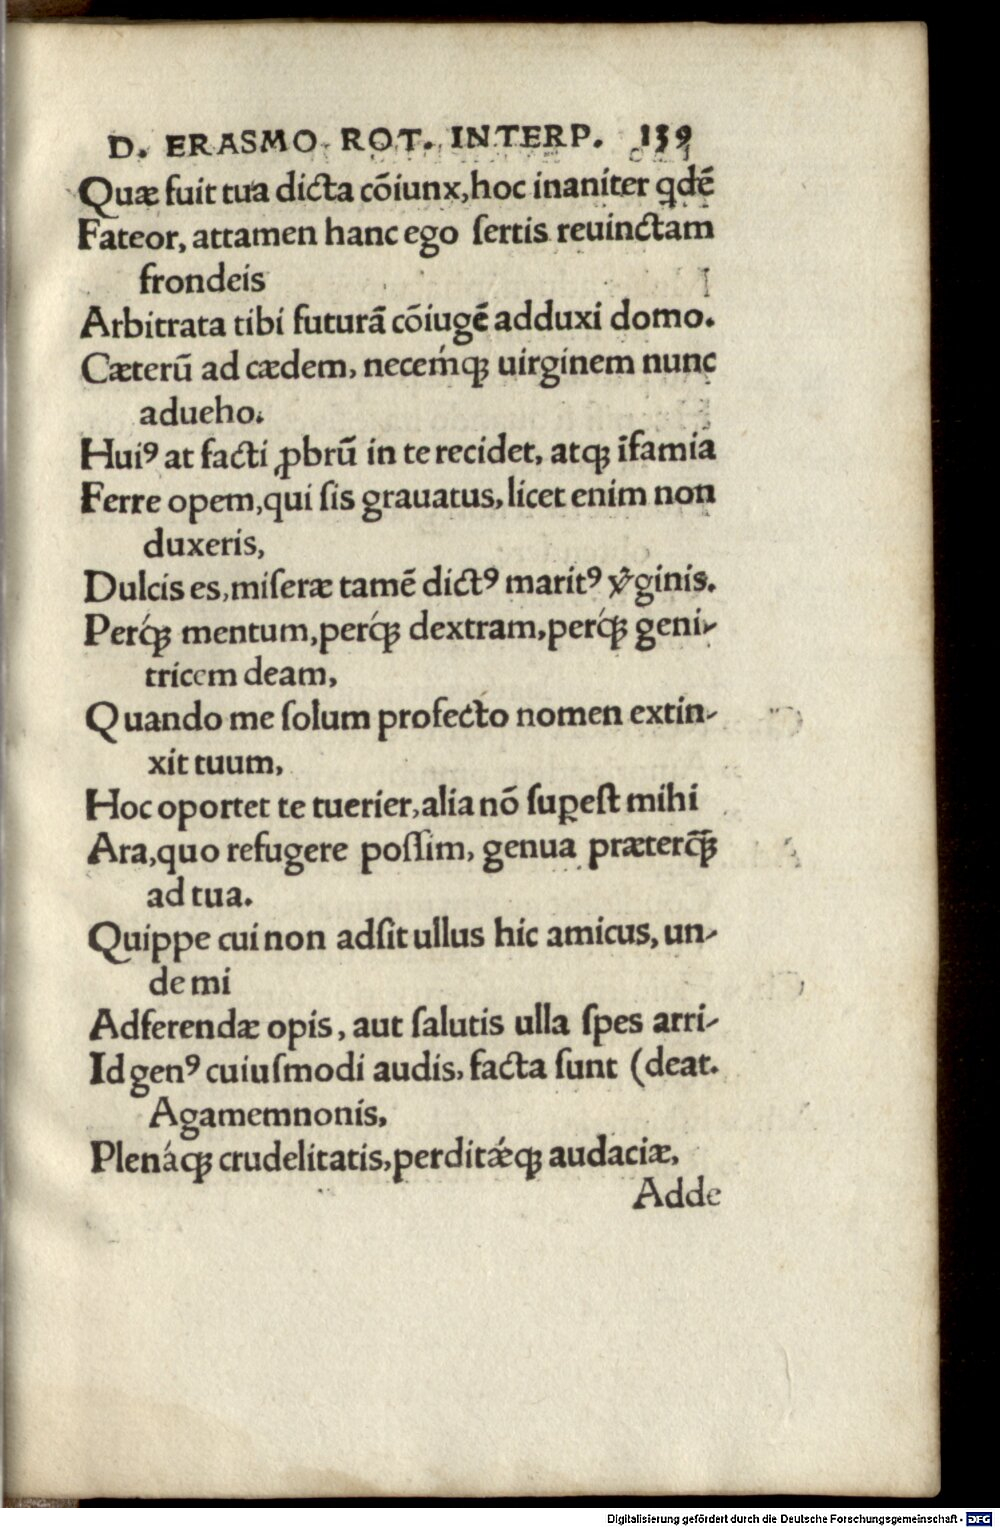 D. ERASMO ROT. INTERP. 159
Quæ fuit tua dicta cõiunx, hoc inaniter qdẽ
Fateor, attamen hanc ego ſertis reuinctam
frondeis
Arbitrata tibi futurã cõiugẽ adduxi domo.
Cæterũ ad cædem, neceḿqꝫ uirginem nunc
adueho.
Huiꝰ at facti ꝓbrũ in te recidet, atqꝫ ĩfamia
Ferre opem, qui ſis grauatus, licet enim non
duxeris,
Dulcis es, miſeræ tamẽ dictꝰ maritꝰ ꝟginis.
Perq́ꝫ mentum, perq́ꝫ dextram, perq́ꝫ geni-
tricem deam,
Quando me ſolum profecto nomen extin-
xit tuum,
Hoc oportet te tuerier, alia nõ ſuꝑeſt mihi
Ara, quo refugere poſſim, genua præterq̃ꝫ
ad tua.
Quippe cui non adſit ullus hic amicus, un-
de mi
Adferendæ opis, aut ſalutis ulla ſpes arri-
Id genꝰ cuiuſmodi audis, facta ſunt (deat.
Agamemnonis,
Plenáqꝫ crudelitatis, perditǽqꝫ audaciæ,
Adde
Digitalisierung gefördert durch die Deutsche Forschungsgemeinschaft - DFG